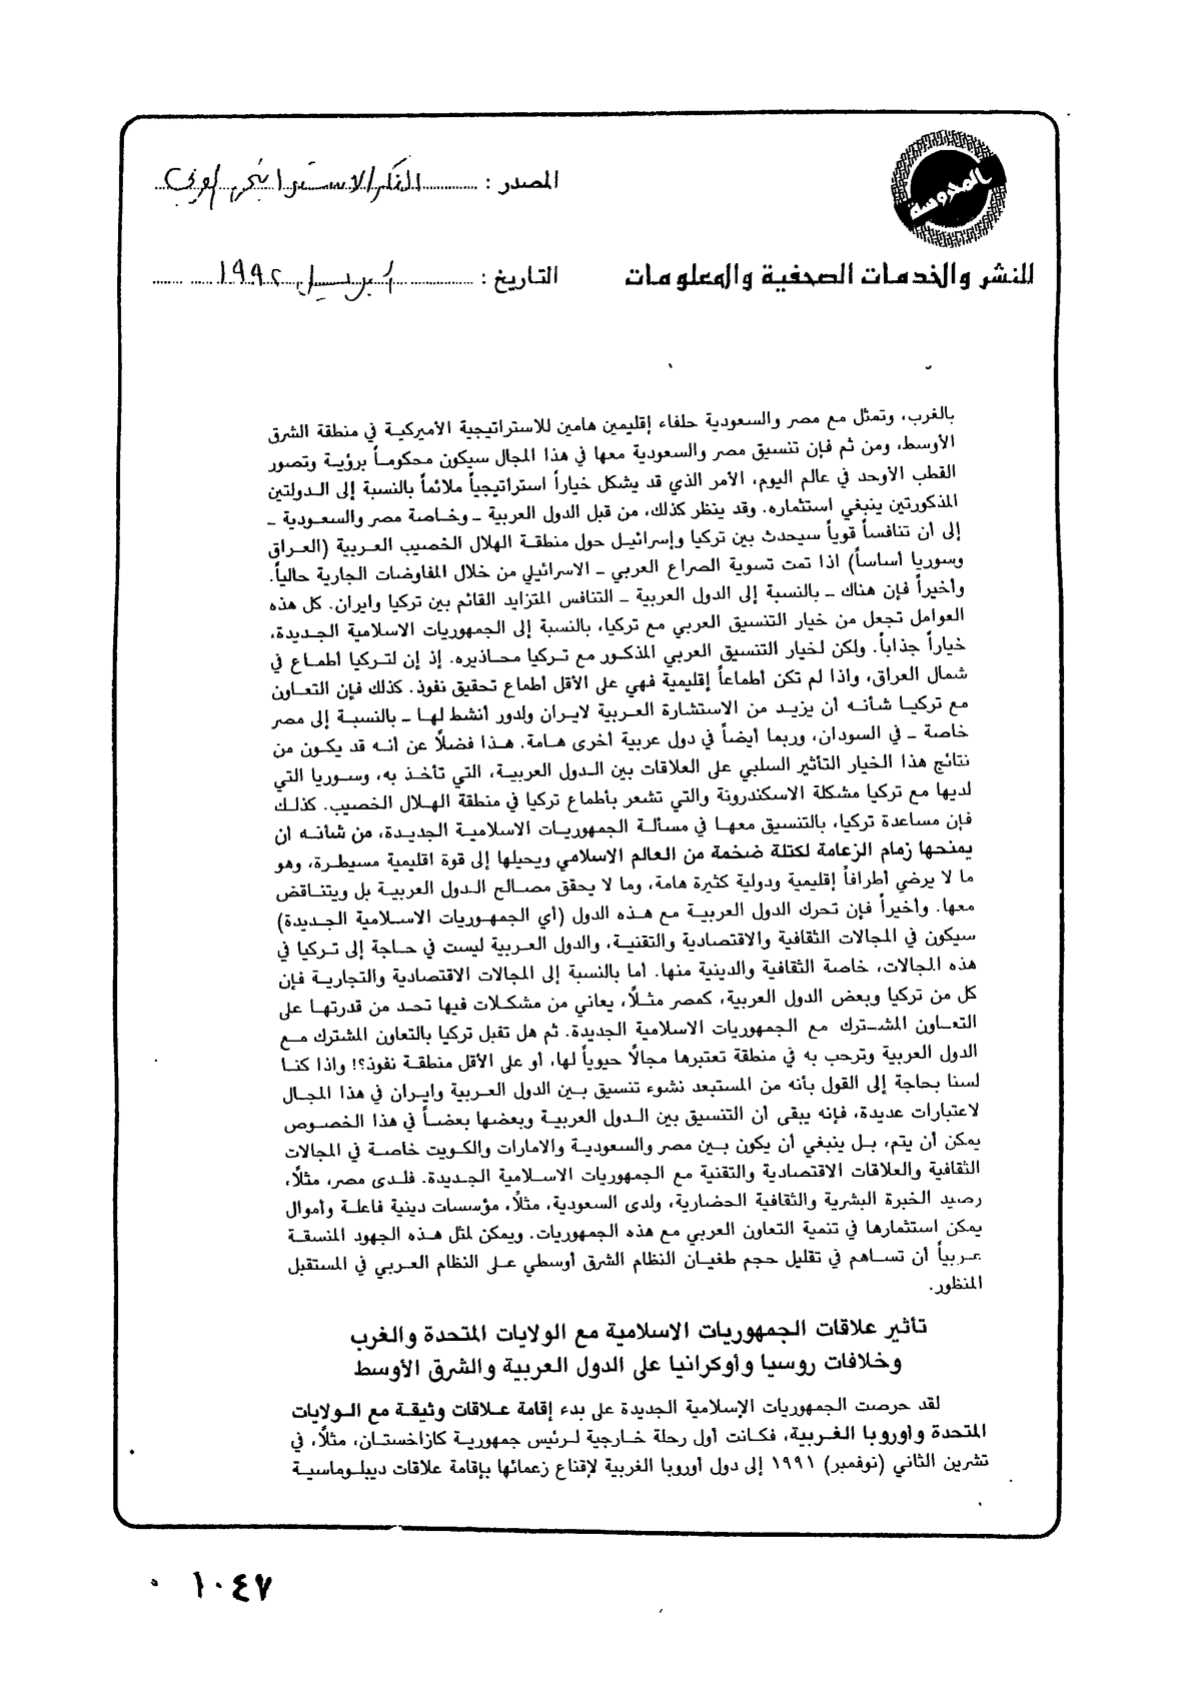 المحروسة
المصدر : الفكر الاستراتيجي العربي
للنشر والخدمات الصحفية والمعلومات
التاريخ : أبريل ١٩٩٢
بالغرب، وتمثل مع مصر والسعودية حلفاء إقليمين هامين للاستراتيجية الأميركية في منطقة الشرق
الأوسط، ومن ثم فإن تنسيق مصر والسعودية معها في هذا المجال سيكون محكوماً برؤية وتصور
القطب الأوحد في عالم اليوم، الأمر الذي قد يشكل خياراً استراتيجياً ملائماً بالنسبة إلى الدولتين
المذكورتين ينبغي استثماره. وقد ينظر كذلك، من قبل الدول العربية ـ وخاصة مصر والسعودية ـ
إلى أن تنافساً قوياً سيحدث بين تركيا وإسرائيل حول منطقة الهلال الخصيب العربية (العراق
وسوريا أساساً) اذا تمت تسوية الصراع العربي ـ الاسرائيلي من خلال المفاوضات الجارية حالياً.
وأخيراً فإن هناك ـ بالنسبة إلى الدول العربية ـ التنافس المتزايد القائم بين تركيا وايران. كل هذه
العوامل تجعل من خيار التنسيق العربي مع تركيا، بالنسبة إلى الجمهوريات الاسلامية الجديدة،
خياراً جذاباً. ولكن لخيار التنسيق العربي المذكور مع تركيا محاذيره. إذ إن لتركيا أطماع في
شمال العراق، واذا لم تكن أطماعاً إقليمية فهي على الأقل أطماع تحقيق نفوذ. كذلك فإن التعاون
مع تركيا شأنه أن يزيد من الاستشارة العربية لايران ولدور أنشط لها ـ بالنسبة إلى مصر
خاصة ـ في السودان، وربما أيضاً في دول عربية أخرى هامة. هذا فضلاً عن أنه قد يكون من
نتائج هذا الخيار التأثير السلبي على العلاقات بين الدول العربية، التي تأخذ به، وسوريا التي
لديها مع تركيا مشكلة الاسكندرونة والتي تشعر بأطماع تركيا في منطقة الهلال الخصيب. كذلك
فإن مساعدة تركيا، بالتنسيق معها في مسألة الجمهوريات الاسلامية الجديدة، من شأنه أن
يمنحها زمام الزعامة لكتلة ضخمة من العالم الاسلامي ويحيلها إلى قوة اقليمية مسيطرة، وهو
ما لا يرضي أطرافاً إقليمية ودولية كثيرة هامة، وما لا يحقق مصالح الدول العربية بل ويتناقض
معها. وأخيراً فإن تحرك الدول العربية مع هذه الدول (أي الجمهوريات الاسلامية الجديدة)
سيكون في المجالات الثقافية والاقتصادية والتقنية، والدول العربية ليست في حاجة إلى تركيا في
هذه المجالات، خاصة الثقافية والدينية منها. أما بالنسبة إلى المجالات الاقتصادية والتجارية فإن
كل من تركيا وبعض الدول العربية، كمصر مثلاً، يعاني من مشكلات فيها تحد من قدرتها على
التعاون المشترك مع الجمهوريات الاسلامية الجديدة. ثم هل تقبل تركيا بالتعاون المشترك مع
الدول العربية وترحب به في منطقة تعتبرها مجالاً حيوياً لها، أو على الأقل منطقة نفوذ؟! واذا كنا
لسنا بحاجة إلى القول بأنه من المستبعد نشوء تنسيق بين الدول العربية وايران في هذا المجال
لاعتبارات عديدة، فإنه يبقى أن التنسيق بين الدول العربية وبعضها بعضاً في هذا الخصوص
يمكن أن يتم، بل ينبغي أن يكون بين مصر والسعودية والامارات والكويت خاصة في المجالات
الثقافية والعلاقات الاقتصادية والتقنية مع الجمهوريات الاسلامية الجديدة. فلدى مصر، مثلاً،
رصيد الخبرة البشرية والثقافية الحضارية، ولدى السعودية، مثلاً، مؤسسات دينية فاعلة وأموال
يمكن استثمارها في تنمية التعاون العربي مع هذه الجمهوريات. ويمكن لمثل هذه الجهود المنسقة
عربياً أن تساهم في تقليل حجم طغيان النظام الشرق أوسطي على النظام العربي في المستقبل
المنظور.
تأثير علاقات الجمهوريات الاسلامية مع الولايات المتحدة والغرب
وخلافات روسيا وأوكرانيا على الدول العربية والشرق الأوسط
لقد حرصت الجمهوريات الإسلامية الجديدة على بدء إقامة علاقات وثيقة مع الولايات
المتحدة وأوروبا الغربية، فكانت أول رحلة خارجية لرئيس جمهورية كازاخستان، مثلاً، في
تشرين الثاني (نوفمبر) ١٩٩١ إلى دول أوروبا الغربية لإقناع زعمائها بإقامة علاقات ديبلوماسية
١٠٤٧